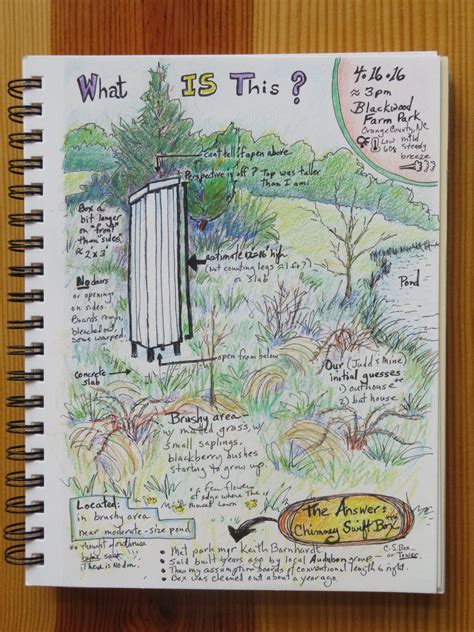 What IS This?
4·16·16
≈ 3pm
Blackwood
Farm Park
Orange County, NC
Low 60s
mild
steady
breeze
can't tell if open above
Perspective is off? Top was taller
than I am!
Box a
bit longer
on "front"
than "sides"
≈ 2' x 3'
estimate 12-16' high
(not counting legs ≈ 1 6?)
or slab
No doors
or openings
on sides.
Boards rough,
bleached out,
some warped.
Pond
open from below
concrete
slab
Our (Judd's & Mine)
initial guesses
1) outhouse
2) bat house
Brushy area
w/ matted grass, w/
small saplings,
blackberry bushes
starting to grow up.
& few flowers
at edge where the
Mowed Lawn
Located:
in brushy area
near moderate-size pond
The Answer:
Chimney Swift Box
C.S. Box
or Tower
thought of outhouse
there is no dm.
• Met park mgr Keith Barnhardt
• Said built years ago by local Audubon group
• Thus my assumption boards of conventional length is right.
• Box was cleaned out about a year ago.